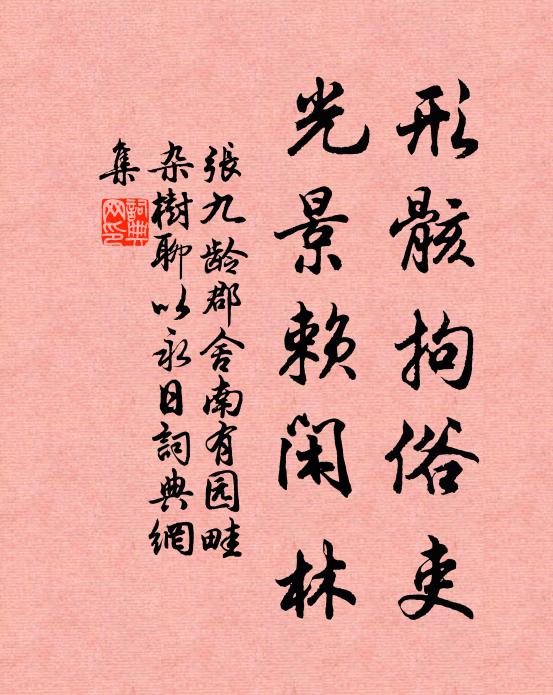 形骸拘俗吏
光景赖闲林
張九龄郡舍南有园畦
杂樹聊以永日詞典網
集
詞典
网印